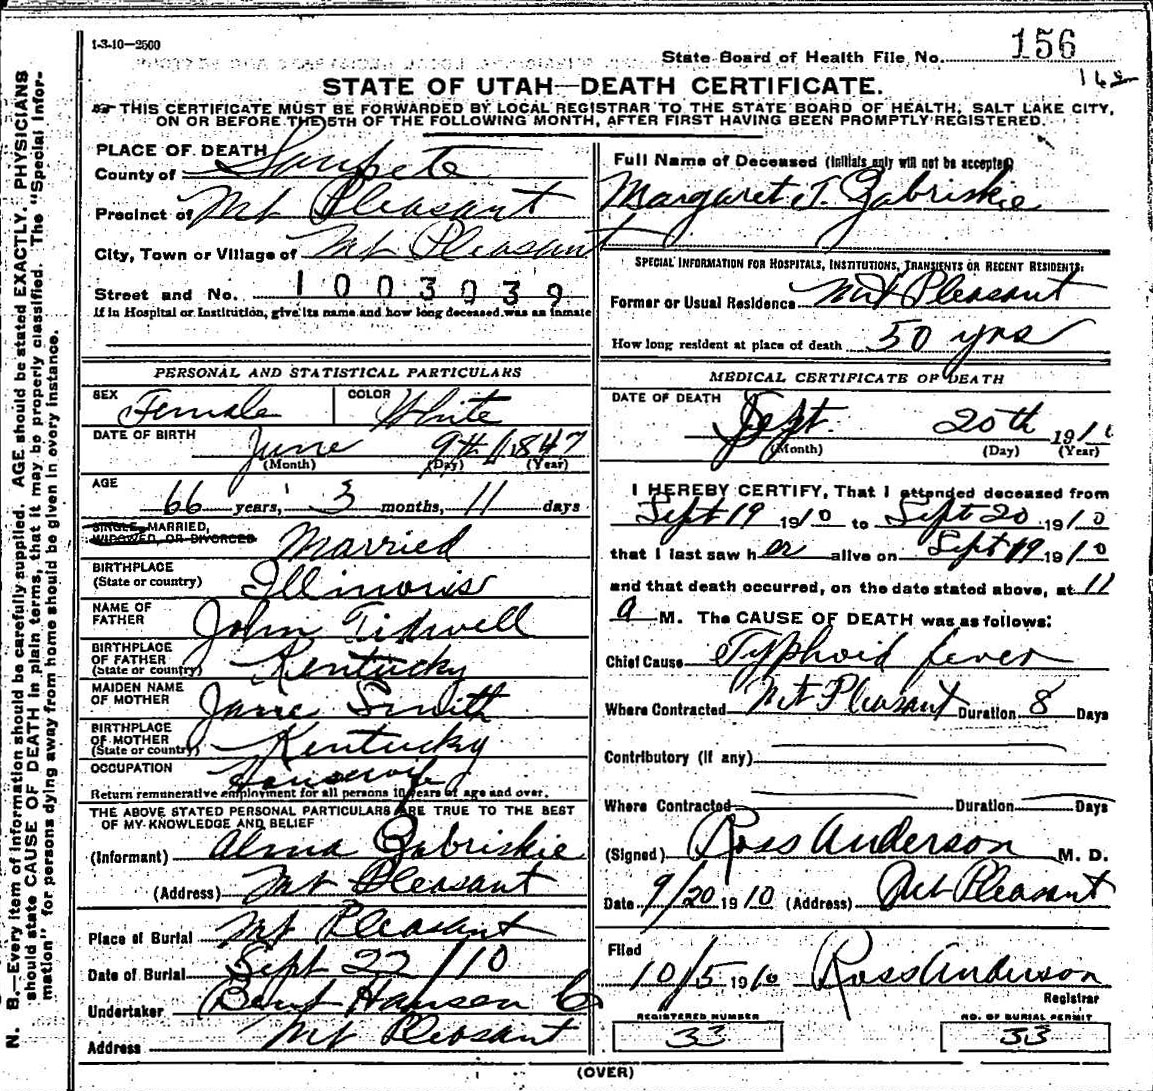 1-3-10—2500
State Board of Health File No. 156
STATE OF UTAH—DEATH CERTIFICATE.
THIS CERTIFICATE MUST BE FORWARDED BY LOCAL REGISTRAR TO THE STATE BOARD OF HEALTH, SALT LAKE CITY,
ON OR BEFORE THE 5TH OF THE FOLLOWING MONTH, AFTER FIRST HAVING BEEN PROMPTLY REGISTERED.
PLACE OF DEATH
County of Sanpete
Precinct of Mt Pleasant
City, Town or Village of Mt Pleasant
Street and No. 1003039
If in Hospital or Institution, give its name and how long deceased was an inmate
PERSONAL AND STATISTICAL PARTICULARS
SEX Female COLOR White
DATE OF BIRTH June 9th 1847
(Month) (Day) (Year)
AGE
66 years, 3 months, 11 days
SINGLE, MARRIED,
WIDOWED, OR DIVORCED Married
BIRTHPLACE
(State or country) Illinois
NAME OF
FATHER John Tidwell
BIRTHPLACE
OF FATHER
(State or country) Kentucky
MAIDEN NAME
OF MOTHER Jane Smith
BIRTHPLACE
OF MOTHER
(State or country) Kentucky
OCCUPATION Housewife
Return remunerative employment for all persons 10 years of age and over.
THE ABOVE STATED PERSONAL PARTICULARS ARE TRUE TO THE BEST
OF MY KNOWLEDGE AND BELIEF
(Informant) Alma Zabriskie
(Address) Mt Pleasant
Place of Burial Mt Pleasant
Date of Burial Sept 22/10
Undertaker Hansen Co
Address Mt Pleasant
Full Name of Deceased (Initials only will not be accepted)
Margaret T. Zabriskie
SPECIAL INFORMATION FOR HOSPITALS, INSTITUTIONS, TRANSIENTS OR RECENT RESIDENTS:
Former or Usual Residence Mt Pleasant
How long resident at place of death 50 yrs
MEDICAL CERTIFICATE OF DEATH
DATE OF DEATH
Sept. 20th 1910
(Month) (Day) (Year)
I HEREBY CERTIFY, That I attended deceased from
Sept 19 1910 to Sept 20 1910
that I last saw her alive on Sept 19 1910
and that death occurred, on the date stated above, at 11
a M. The CAUSE OF DEATH was as follows:
Chief Cause Typhoid fever
Where Contracted Mt Pleasant Duration 8 Days
Contributory (if any)
Where Contracted Duration Days
(Signed) Ross Anderson M. D.
Date 9/20 1910 (Address) Mt Pleasant
Filed
10/5 1910 Ross Anderson
Registrar
REGISTERED NUMBER
33
NO. OF BURIAL PERMIT
33
(OVER)
N. B.—Every item of information should be carefully supplied. AGE should be stated EXACTLY. PHYSICIANS
should state CAUSE OF DEATH in plain terms, that it may be properly classified. The "Special Infor-
mation" for persons dying away from home should be given in every instance.